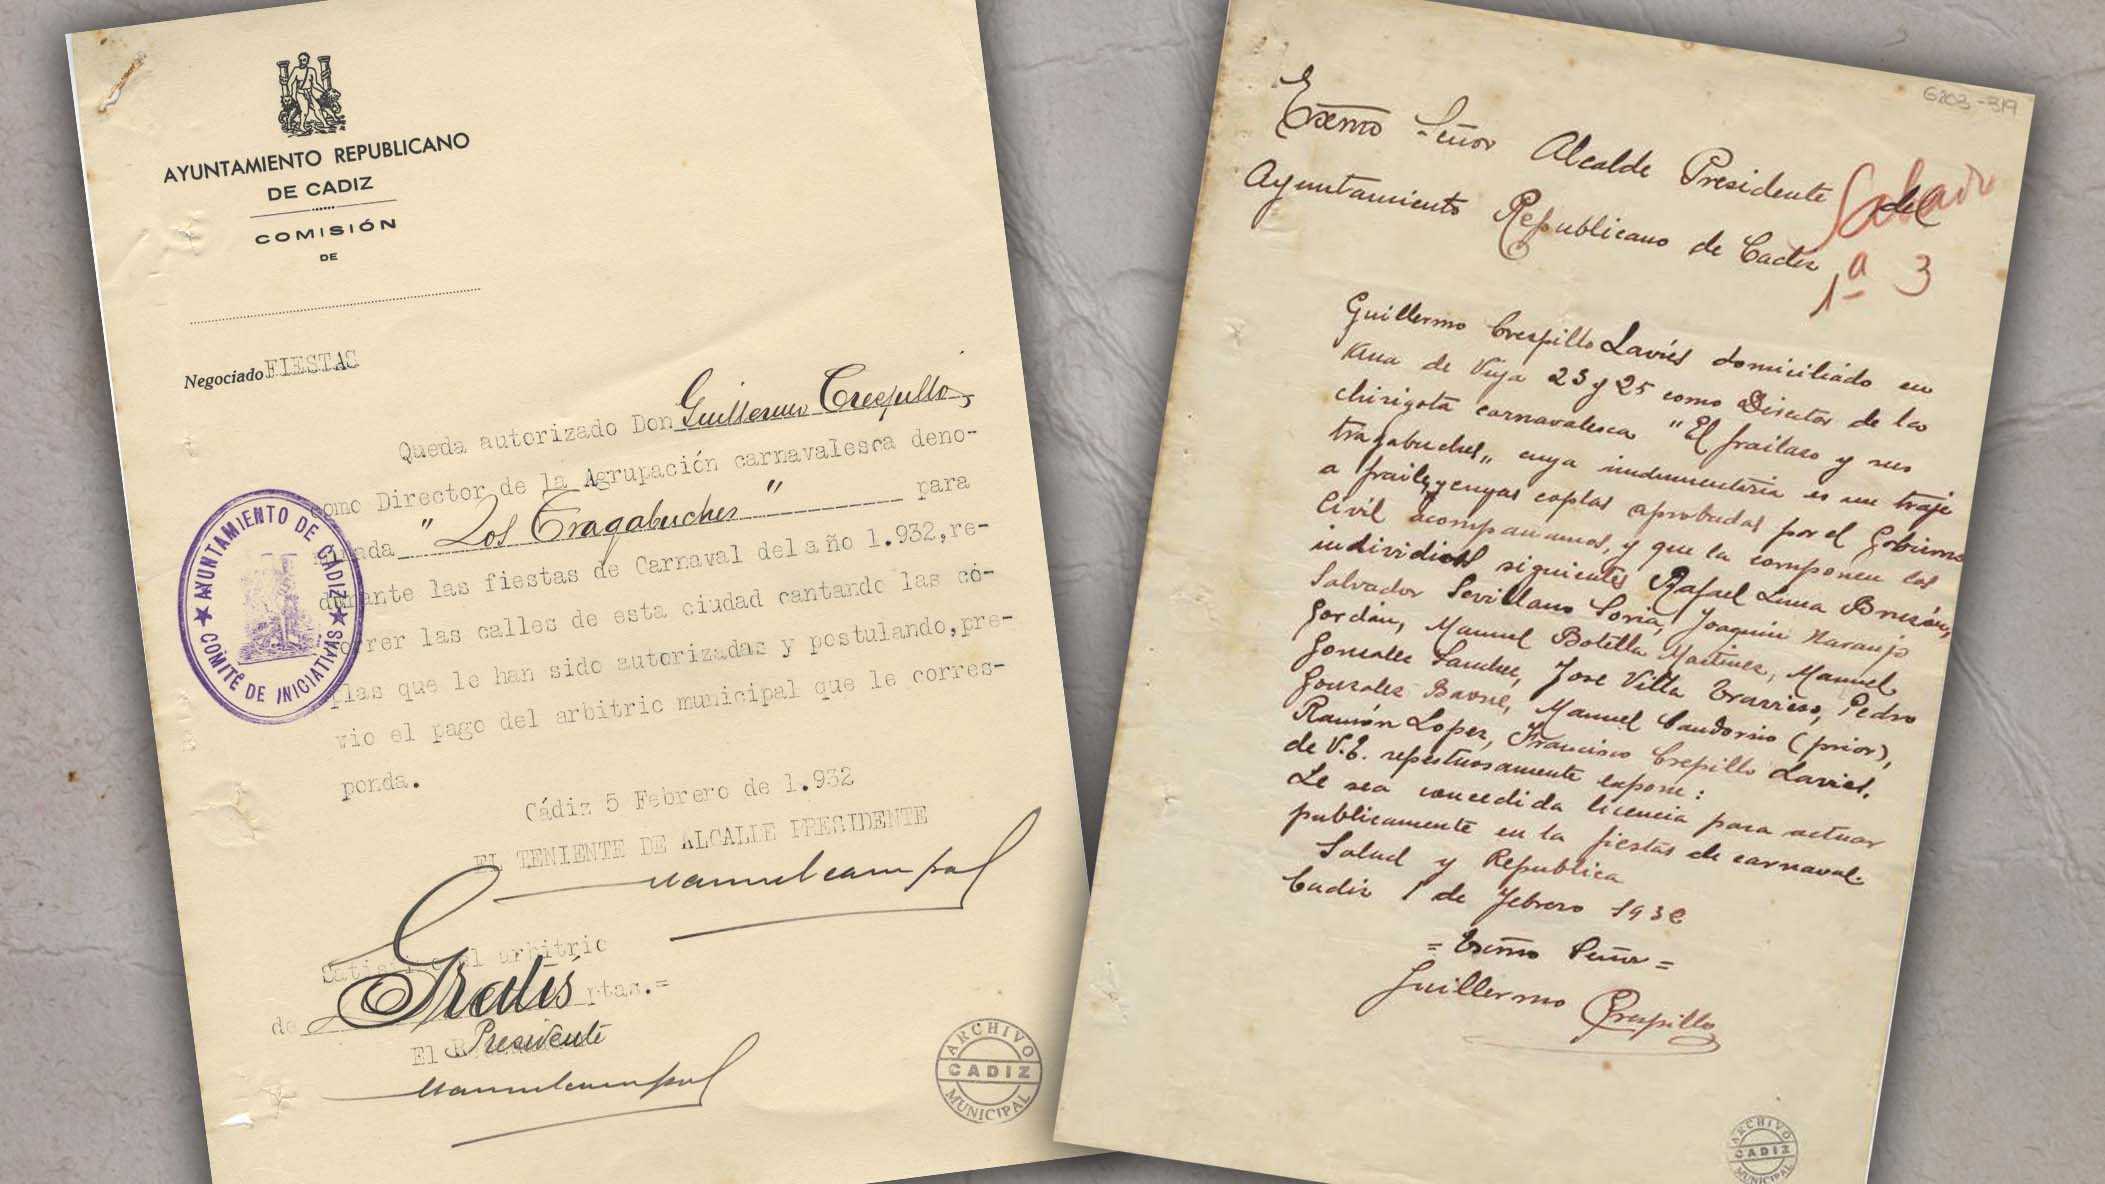 AYUNTAMIENTO REPUBLICANO
DE CADIZ
COMISIÓN
DE
Negociado FIESTAS
Queda autorizado Don Guillermo Crespillo,
como Director de la Agrupación carnavalesca deno-
minada "Los Tragabuches" para
durante las fiestas de Carnaval del año 1.932, re-
correr las calles de esta ciudad cantando las co-
plas que le han sido autorizadas y postulando, pre-
vio el pago del arbitrio municipal que le corres-
ponda.
Cádiz 5 Febrero de 1.932
EL TENIENTE DE ALCALDE PRESIDENTE
AYUNTAMIENTO DE CÁDIZ
COMITÉ DE INICIATIVAS
el arbitrio
de Gratis ptas.=
El Presidente
ARCHIVO
CADIZ
MUNICIPAL
6203-319
Exmo Señor Alcalde Presidente del
Ayuntamiento Republicano de Cadiz
Sabado
1ª 3
Guillermo Crespillo Lavié domiciliado en
de Vega 23 y 25 como Director de la
chirigota carnavalesca "El frailaso y sus
tragabuches" cuya indumentaria es un traje
a fraile, y cuyas coplas aprobadas por el Gobierno
Civil acompañamos, y que la componen los
individios siguientes Rafael Luna
Salvador Sevillano Soria, Joaquin Naranjo
Jordán, Manuel Botella Martinez, Manuel
Gonzalez Sanchez, Jose Villa Pedro
Gonzalez Manuel (prior),
Ramón Lopez, Francisco Crepillo Lavié.
de V.E. repetuosamente expone:
Le sea concedida licencia para actuar
publicamente en la fiestas de carnaval.
Salud y Republica
Cadiz 1 de Febrero 1932
= Exmo Señor =
Guillermo Crespillo
ARCHIVO
CADIZ
MUNICIPAL